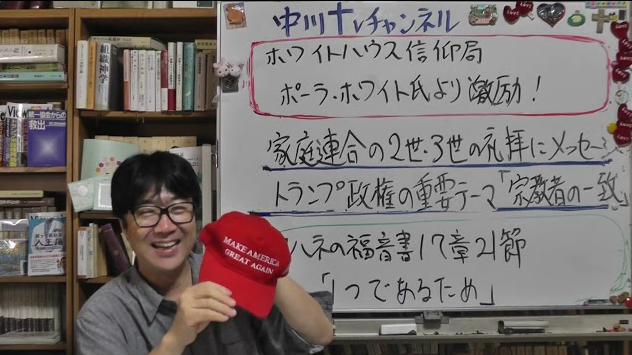 中川†vチャンネル
ホワイトハウス信仰局
ポーラ・ホワイト氏より激励!
家庭連合の2世・3世の礼拝にメッセージ
トランプ政権の重要テーマ「宗教者の一致」
ハネの福音書17章21節
「1つであるため」
MAKE AMERICA
GREAT AGAIN
組織神学
統一協会からの
救出